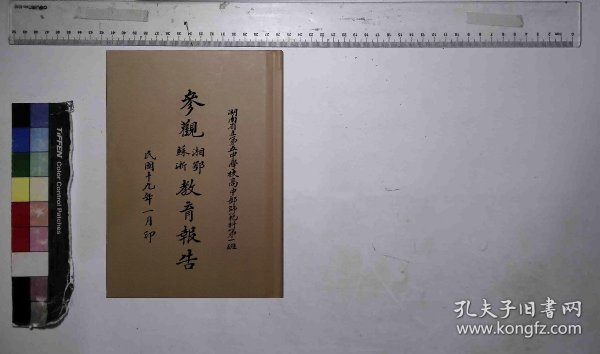 湖南省立第五中學校高中部師范科第一班
參觀湘鄂蘇浙教育報告
民國十九年一月印
TIFFEN Color Control Patches
孔夫子旧书网
www.kongfz.com